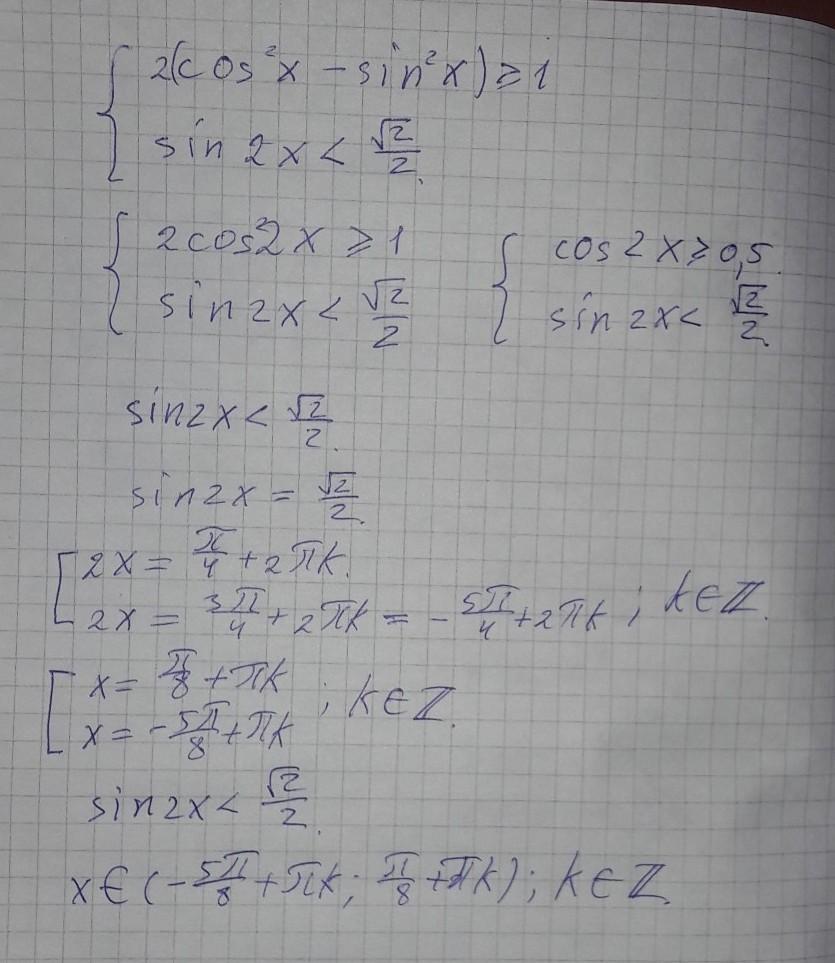 { 2(cos²x - sin²x) ≥ 1
sin 2x < √2/2
{ 2cos2x ≥ 1
sin 2x < √2/2
{ cos 2x ≥ 0,5
sin 2x < √2/2
sin 2x < √2/2
sin 2x = √2/2
[ 2x = π/4 + 2πk
2x = 3π/4 + 2πk = -5π/4 + 2πk ; k ∈ ℤ.
[ x = π/8 + πk
x = -5π/8 + πk ; k ∈ ℤ.
sin 2x < √2/2
x ∈ (-5π/8 + πk; π/8 + πk); k ∈ ℤ.